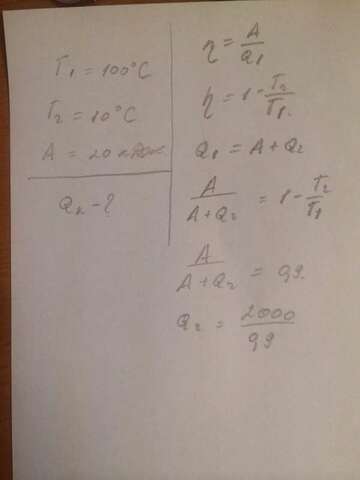 T₁ = 100°C
T₂ = 10°C
A = 20 кДж
Qₓ - ?
η = A/Q₁
η = 1 - T₂/T₁
Q₁ = A + Q₂
A/(A + Q₂) = 1 - T₂/T₁
A/(A + Q₂) = 0,9
Q₂ = 2000/0,9